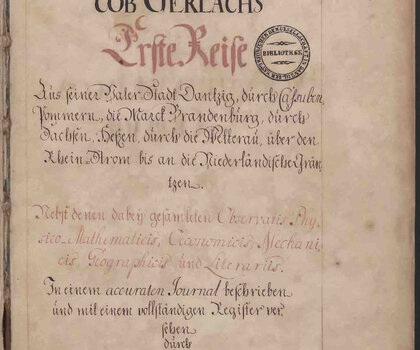 COB GERLACHS
Erste Reise
BIBLIOTHEK
Aus seiner Vater-Stadt Dantzig, durch Cassuben,
Pommern, die Marck Brandenburg, durch
Sachsen, Heßen, durch die Wetterau, über den
Rhein-Strom bis an die Niederländische Grän-
tzen.
Nebst denen dabey gesamleten Observatis Phy-
sico-Mathematicis, Oeconomicis, Mechani-
cis, Geographicis und Literariis.
In einem accuraten Journal beschrieben
und mit einem vollständigen Register ver-
sehen
durch